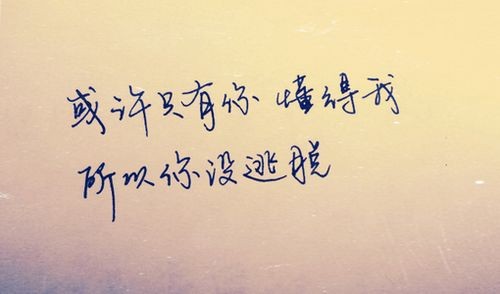 或许只有你懂得我
所以你没逃脱